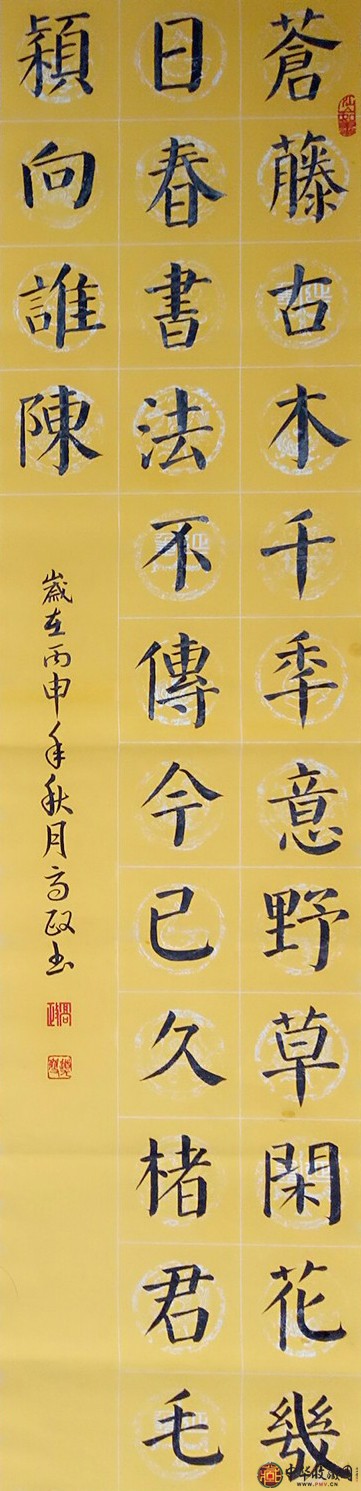 蒼藤古木千秊意野草閑花幾
日春書法不傳今已久楮君毛
穎向誰陳
歲在丙申年秋月高政書
中华收藏网
WWW.PMV.CN